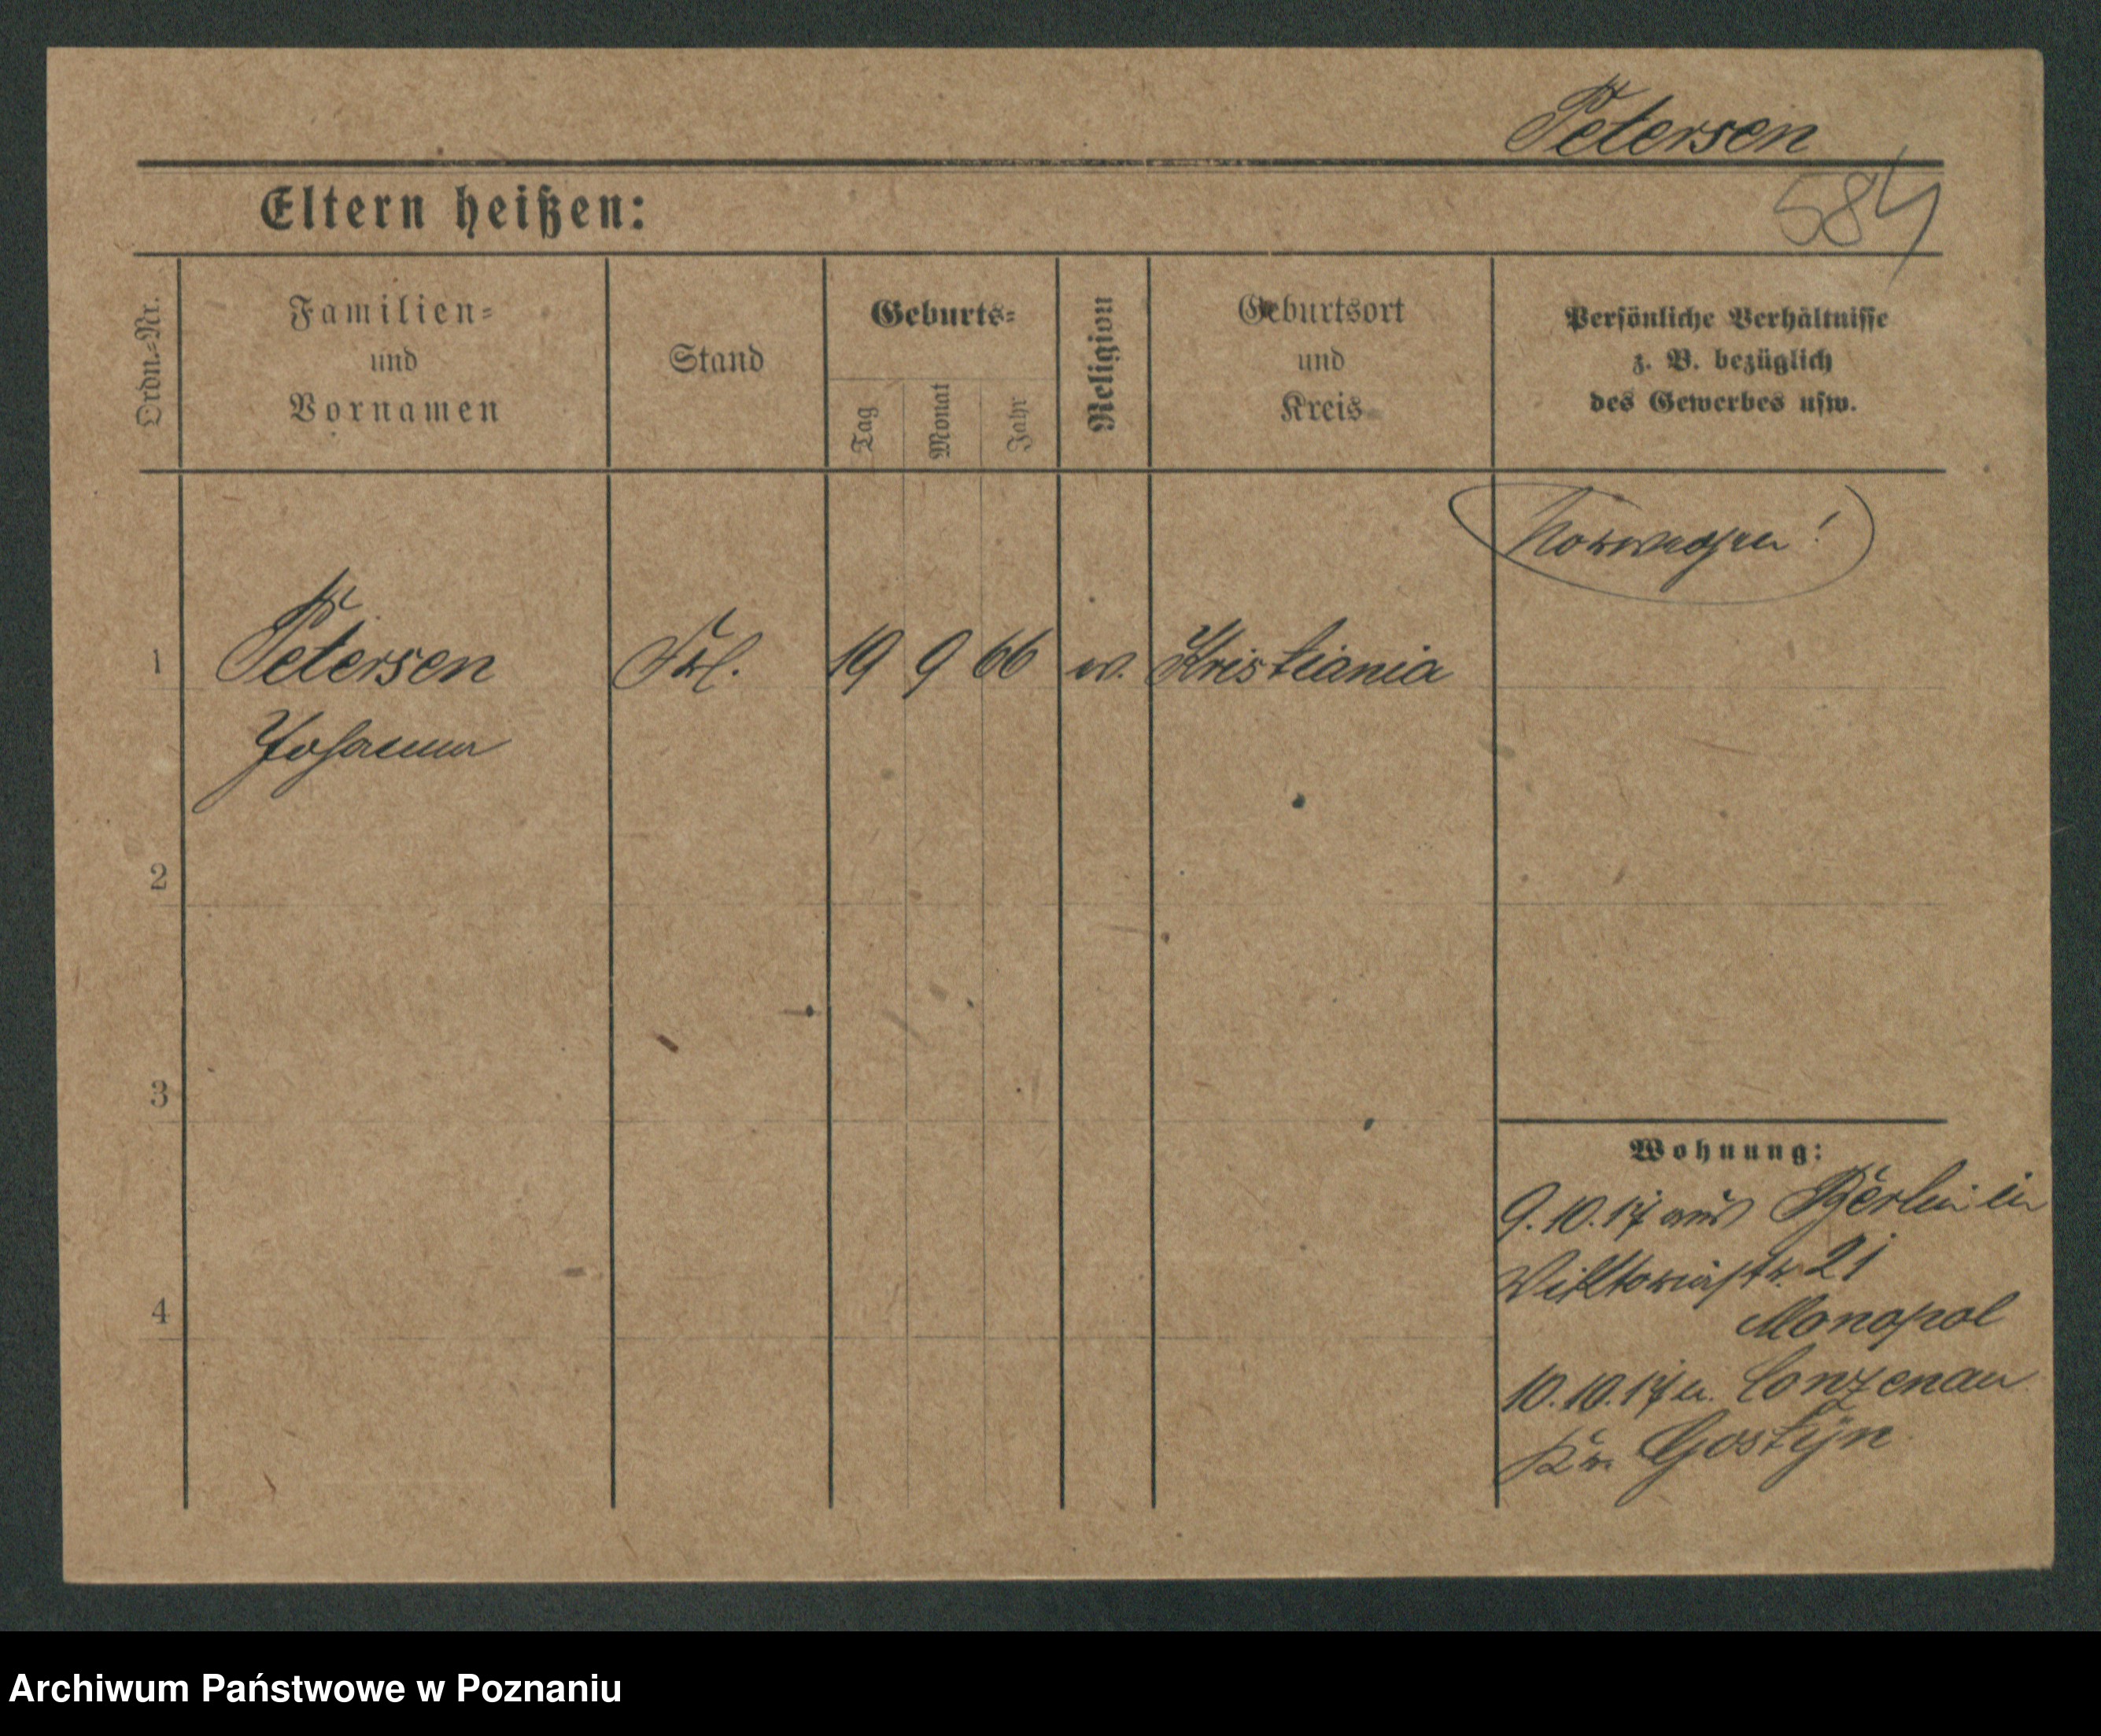 Petersen
584
Eltern heißen:
Ordn.-Nr.
Familien=
und
Vornamen
Stand
Geburts=
Tag
Monat
Jahr
Religion
Geburtsort
und
Kreis
Persönliche Verhältnisse
z. B. bezüglich
des Gewerbes usw.
Norwegen!
1 Petersen Frl. 19 9 66 ev. Kristiania
Johanna
2
3
4
Wohnung:
9.10.17 aus Berlin in
Viktoriastr. 21
Monopol
10.10.17 n. Conzenau
Kr. Gostyn
Archiwum Państwowe w Poznaniu